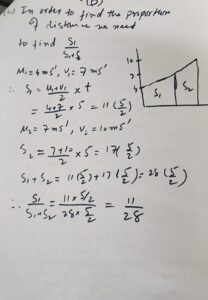 (c) In order to find the proportion
of distance we need
to find S₁/(S₁+S₂)
u₁=4ms⁻¹, v₁=7ms⁻¹
∴ S₁ = (u₁+v₁)/2 × t
= (4+7)/2 × 5 = 11(5/2)
u₂=7ms⁻¹, v₂=10ms⁻¹
S₂ = (7+10)/2 × 5 = 17(5/2)
S₁+S₂ = 11(5/2)+17(5/2)=28(5/2)
∴ S₁/(S₁+S₂) = (11×5/2)/(28×5/2) = 11/28
10
7
4
S₁
S₂